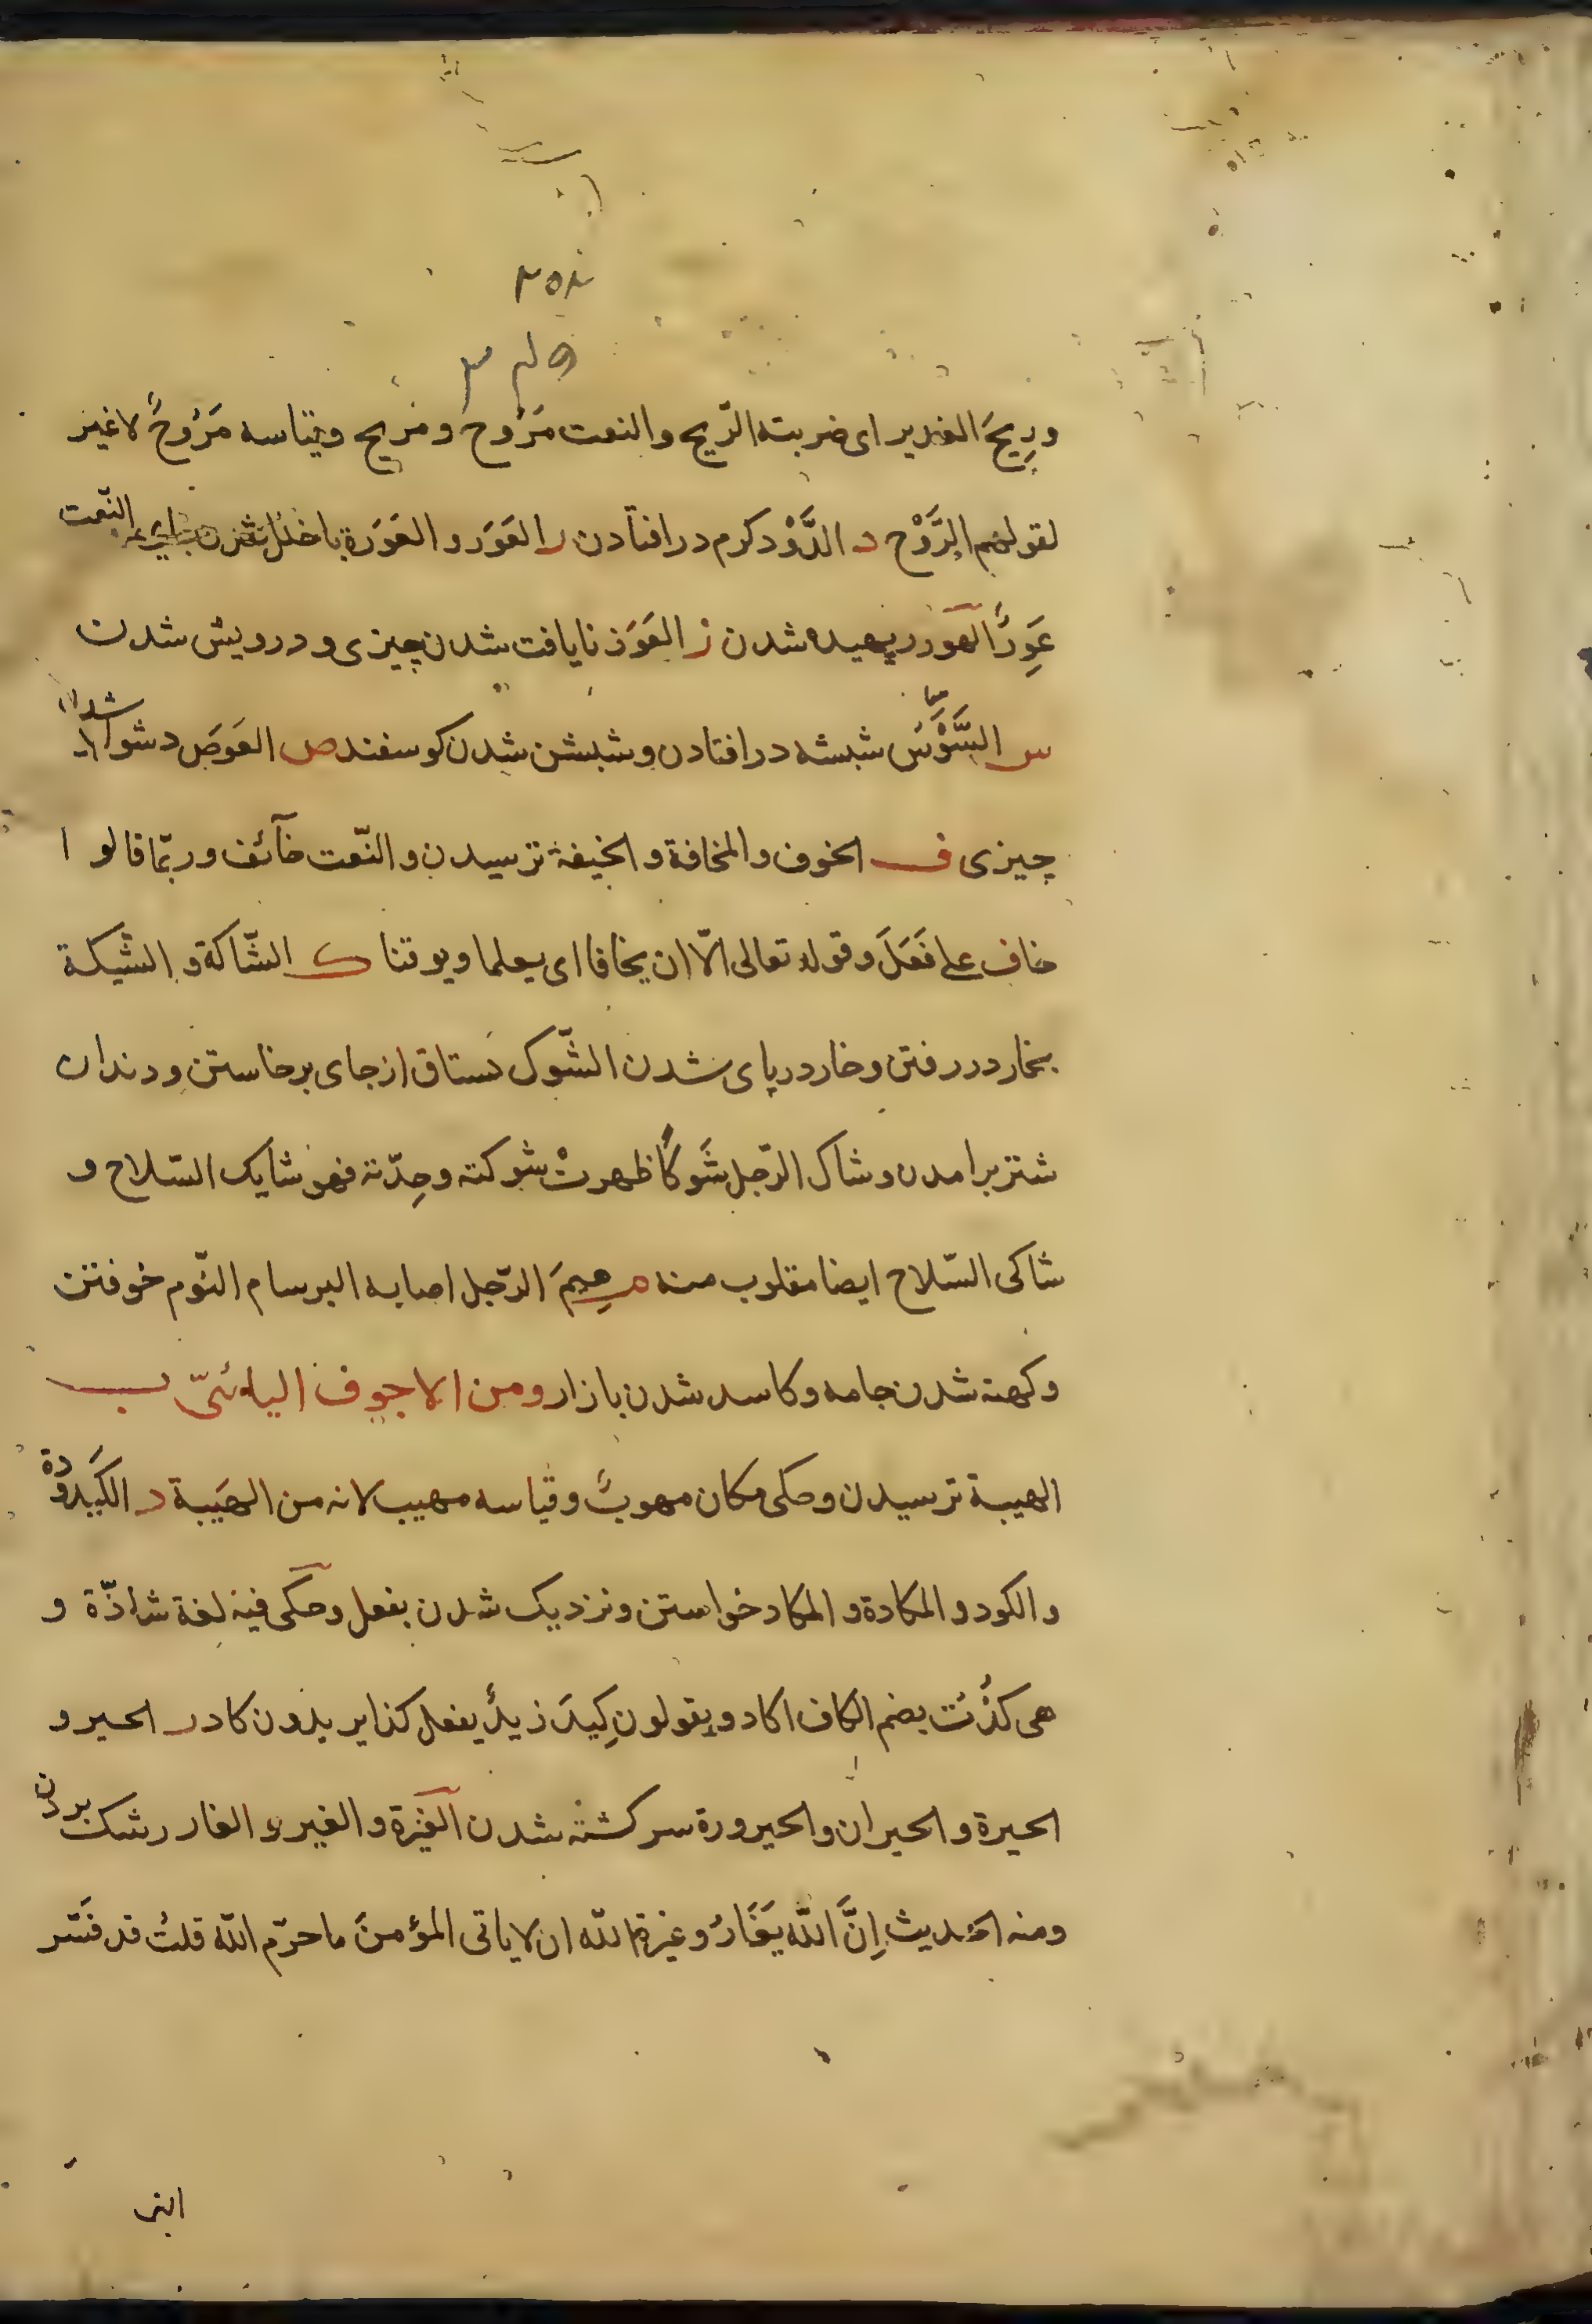 ورِيحَ الغدير ای ضربته الرّيح والنعت مَرُوح ومَريح وقياسه مَرُوحٌ لاغير
لقولهم الرَّوْح د الدَّوْد کرم در افتادن ر العَوَر و العَوَرة باخلل شدن جای النّعت
عَوِرٌ العور ريهيده شدن ز العَوَز نايافت شدن چيزی و درويش شدن
س السَّوْس شبشه در افتادن و شبشن شدن کوسفند ص العَوَص دشوار شدن
چيزی ف الخوف و المخافة و الخيفة ترسيدن و النّعت خآئف و ربّما قالوا
خاف علی فَعَلَ و قوله تعالی الّا ان يخافا ای يعلما و يوقنا ک الشّاکة و الشّيکة
بخار در رفتن و خار در پای شدن الشّوک ستاق از جای برخاستن و دندان
شتر برامدن و شاک الرّجل شَوکًا ظهرتْ شوکته و حِدّته فهو شايک السّلاح و
شاکی السّلاح ايضا مقلوب منه م مِيمَ الرّجل اصابه البرسام النّوم خوفتن
و کهنه شدن جامه و کاسد شدن بازار ومن الاجوف اليائیّ ب
الهيبة ترسيدن و حکی مکان مهوبٌ و قياسه مهيب لانه من الهَيبة د الکَيدودة
و الکود و المکادة و المکاد خواستن و نزديک شدن بفعل و حکی فيه لغة شاذّة و
هی کُدْتُ بضم الکاف اکاد و يقولون کِيدَ زيدٌ يفعل کذا يريدون کاد ر الحير و
الحيرة و الحيران و الحيرورة سرکشته شدن الغَيْرة و الغير و الغار رشک بردن
ومنه الحديث إِنَّ اللّٰه يَغَارُ و غيرة اللّٰه ان لا ياتی المؤمنَ ما حرّم اللّٰه قلتُ قد فَسّر